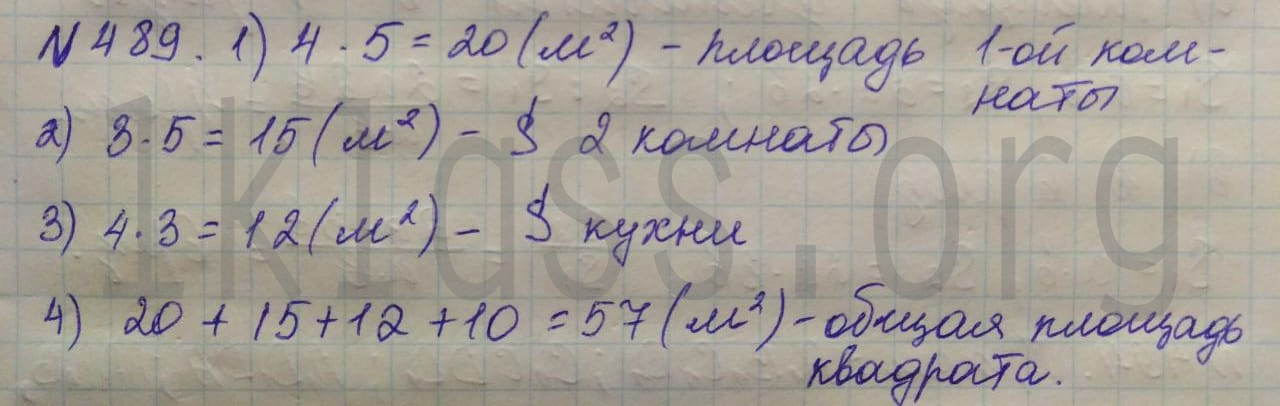 N 489. 1) 4 · 5 = 20 (м²) - площадь 1-ой ком-
наты
2) 3 · 5 = 15 (м²) - S 2 комнаты
3) 4 · 3 = 12 (м²) - S кухни
4) 20 + 15 + 12 + 10 = 57 (м²) - общая площадь
квадрата.
1klass.org